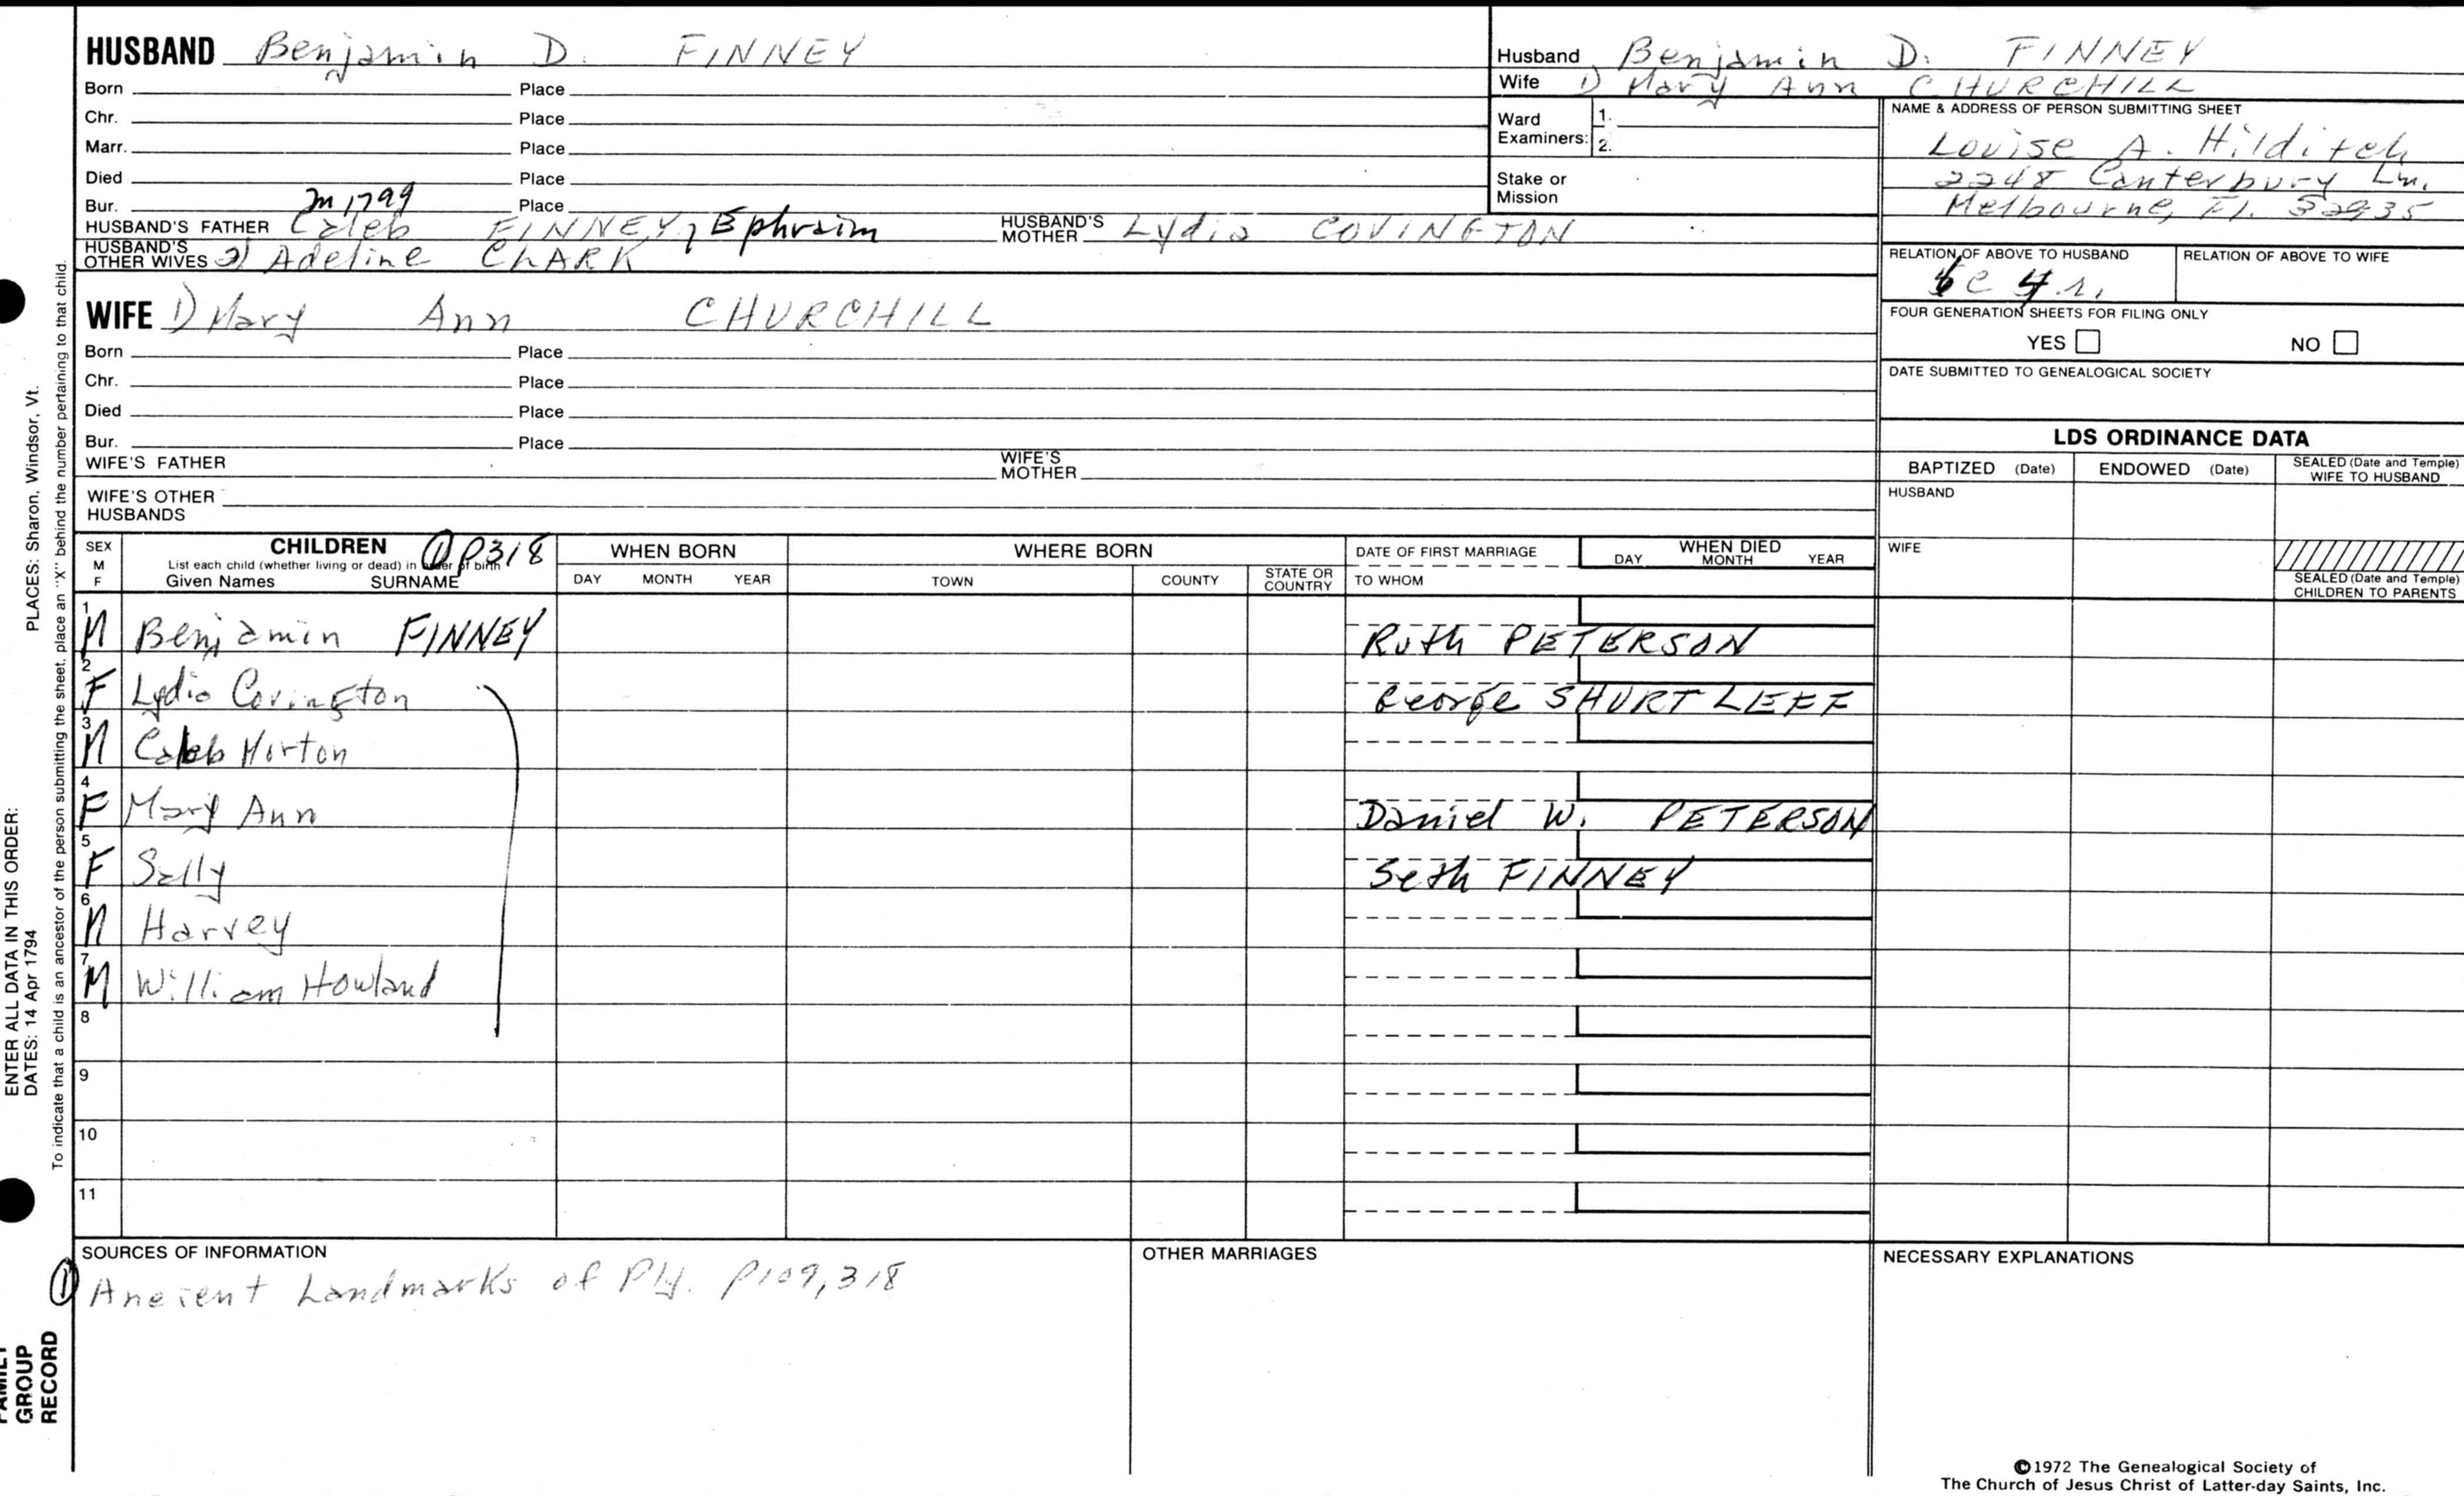 HUSBAND Benjamin D. FINNEY
Born Place
Chr. Place
Marr. Place
Died Place
Bur. m 1799 Place
HUSBAND'S FATHER Caleb FINNEY, Ephraim HUSBAND'S MOTHER Lydia COVINGTON
HUSBAND'S OTHER WIVES 2) Adeline CLARK
WIFE 1) Mary Ann CHURCHILL
Born Place
Chr. Place
Died Place
Bur. Place
WIFE'S FATHER WIFE'S MOTHER
WIFE'S OTHER HUSBANDS
Husband Benjamin D. FINNEY
Wife 1) Mary Ann CHURCHILL
Ward Examiners: 1.
2.
Stake or Mission
NAME & ADDRESS OF PERSON SUBMITTING SHEET
Louise A. Hilditch
2248 Canterbury Ln.
Melbourne, Fl. 32935
RELATION OF ABOVE TO HUSBAND RELATION OF ABOVE TO WIFE
FOUR GENERATION SHEETS FOR FILING ONLY
YES NO
DATE SUBMITTED TO GENEALOGICAL SOCIETY
LDS ORDINANCE DATA
BAPTIZED (Date) ENDOWED (Date) SEALED (Date and Temple) WIFE TO HUSBAND
HUSBAND
WIFE
SEALED (Date and Temple) CHILDREN TO PARENTS
SEX M F
CHILDREN ① P318
List each child (whether living or dead) in order of birth
Given Names SURNAME
WHEN BORN
DAY MONTH YEAR
WHERE BORN
TOWN COUNTY STATE OR COUNTRY
DATE OF FIRST MARRIAGE
TO WHOM
WHEN DIED
DAY MONTH YEAR
1 M Benjamin FINNEY Ruth PETERSON
2 F Lydia Covington George SHURTLEFF
3 M Caleb Morton
4 F Mary Ann Daniel W. PETERSON
5 F Sally Seth FINNEY
6 M Harvey
7 M William Howland
8
9
10
11
SOURCES OF INFORMATION
① Ancient Landmarks of Ply. P109, 318
OTHER MARRIAGES
NECESSARY EXPLANATIONS
©1972 The Genealogical Society of
The Church of Jesus Christ of Latter-day Saints, Inc.
ENTER ALL DATA IN THIS ORDER:
DATES: 14 Apr 1794 PLACES: Sharon, Windsor, Vt.
To indicate that a child is an ancestor of the person submitting the sheet, place an "X" behind the number pertaining to that child.
FAMILY
GROUP
RECORD